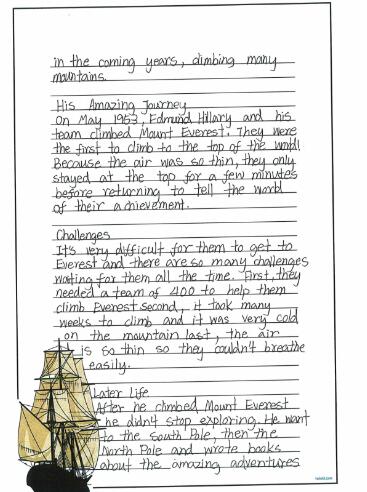 in the coming years, climbing many
mountains.
His Amazing Journey
On May 1953, Edmund Hillary and his
team climbed Mount Everest. They were
the first to climb to the top of the world!
Because the air was so thin, they only
stayed at the top for a few minutes
before returning to tell the world
of their achievement.
Challenges
It's very difficult for them to get to
Everest and there are so many challenges
waiting for them all the time. First, they
needed a team of 400 to help them
climb Everest second, it took many
weeks to climb and it was very cold
on the mountain last, the air
is so thin so they couldn't breathe
easily.
Later Life
After he climbed Mount Everest
he didn't stop exploring. He want
to the south Pole, then the
North Pole and wrote books
about the amazing adventures